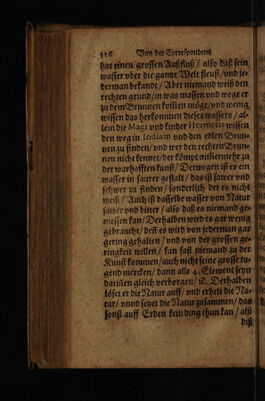 316 Von der Correspondentz
hat einen grossen Außfluß / also daß sein
wasser vber die gantze Welt fleust / vnd je-
derman bekandt / Aber niemand weiß den
rechten grund / in was massen vnd wege er
zu dem Brunnen kommen möge / vnd wenig
wissen das herkommen dieses wassers / al-
lein die Magi vnd kinder Hermetis wissen
den weg in Indiam vnd den edlen Brun-
nen zu finden / vnd wer den rechten Brun-
nen nicht kennet / der kömpt nimmermehr zu
der warhafften kunst / Derwegen ist es ein
wasser in saurer gestalt / das ist sawer vnd
schwer zu finden / sonderlich der es nicht
weiß / Auch ist dasselbe wasser von Natur
sawer vnd bitter / also daß es niemand ge-
messen kan / Derhalben wird es gar wenig
gebraucht / deß es wird von jederman gar
gering gehalten / vnd von der grossen ge-
ringkeit willen / kan fast niemand zu der
Kunst kommen / auch nicht seine grosse tu-
gend mercken / dann alle 4. Element seyn
dariñen gleich verborgen / ꝛc. Derhalben
löset er die Natur auff / vnd erhelt die Na-
tur / vnnd setzet die Natur zusammen / das
sonst auff Erden kein ding thun kan / als
diß